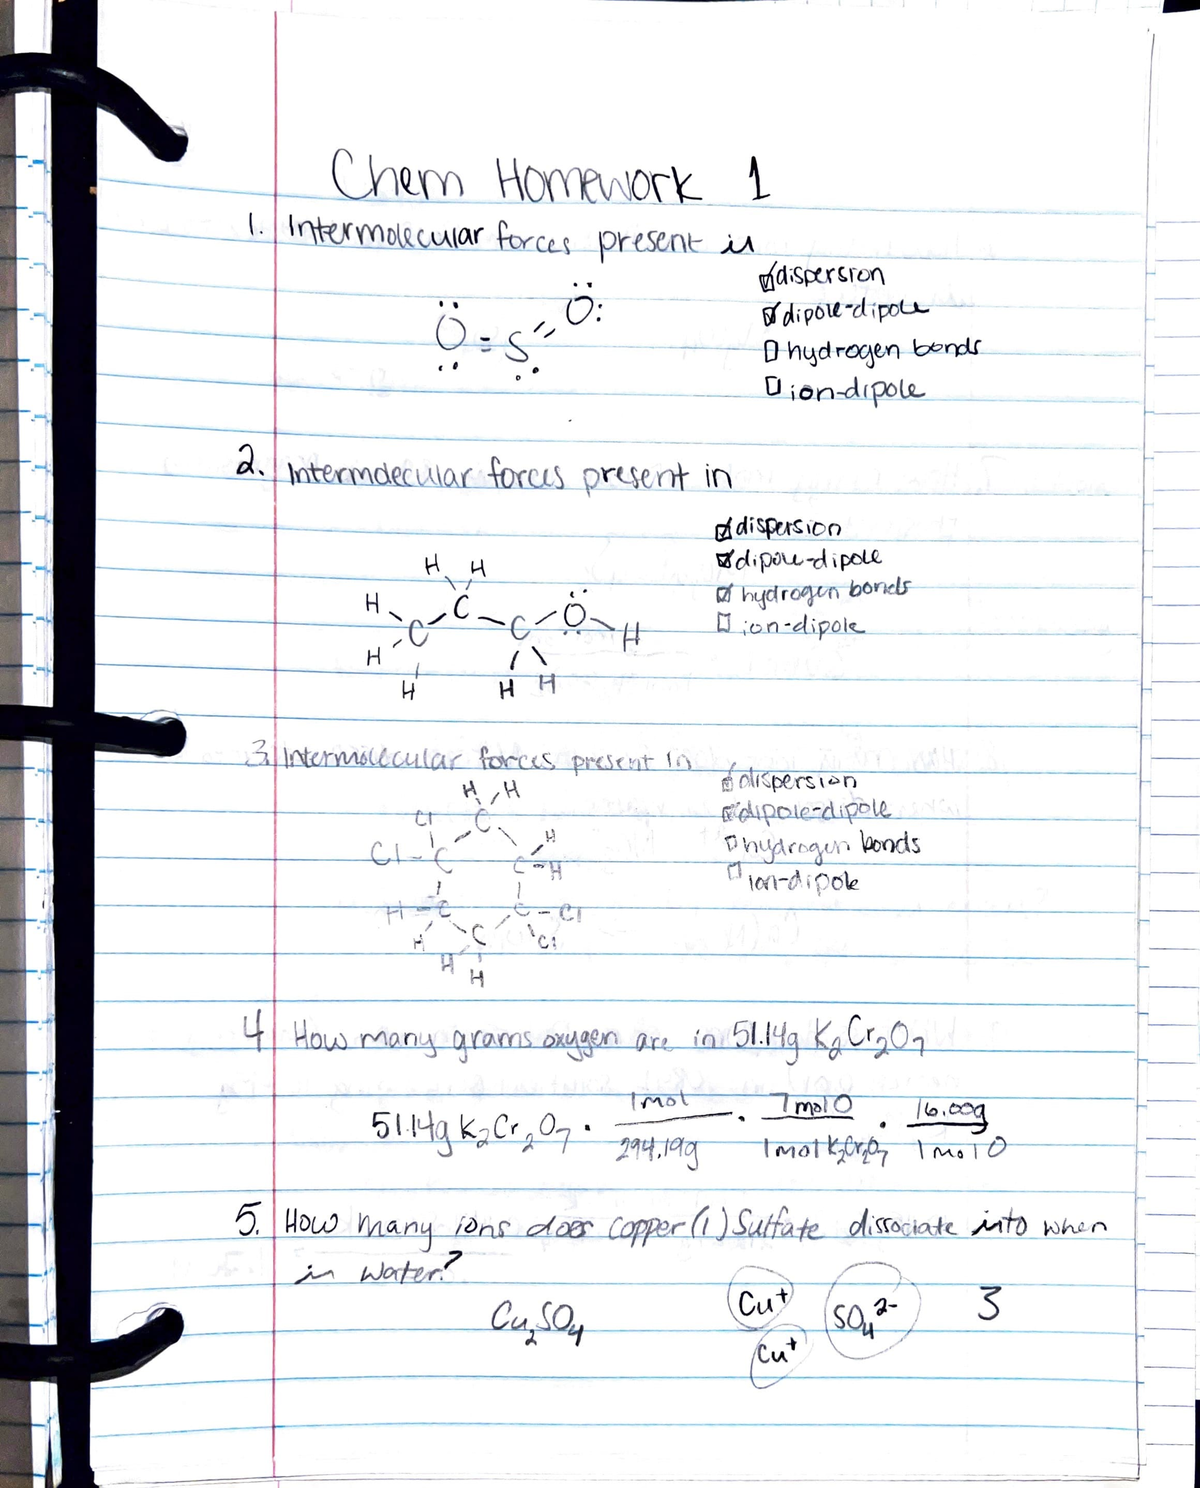 Chem Homework 1
1. Intermolecular forces present is
☑ dispersion
☑ dipole-dipole
☐ hydrogen bonds
☐ ion-dipole
Ö = S = Ö:
2. Intermolecular forces present in
☑ dispersion
☑ dipole-dipole
☑ hydrogen bonds
☐ ion-dipole
H H
H C
C C Ö H
H
H H H
3. Intermolecular forces present in
☑ dispersion
☑ dipole-dipole
☐ hydrogen bonds
☐ ion-dipole
H H
Cl C
H
Cl - C C - H
H - C C - Cl
H C Cl
H H
4 How many grams oxygen are in 51.14g K₂Cr₂O₇
51.14g K₂Cr₂O₇ · 1 mol / 294.19g · 7 mol O / 1 mol K₂Cr₂O₇ · 16.00g / 1 mol O
5. How many ions does copper (1) Sulfate dissociate into when
in water?
Cu₂SO₄ Cu⁺ SO₄²⁻ 3
Cu⁺